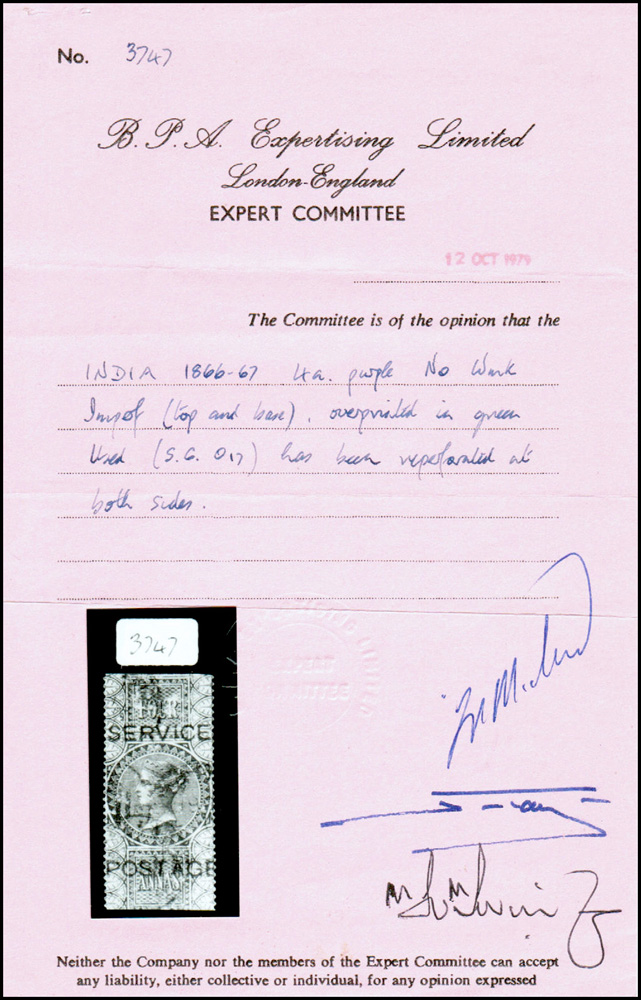 No. 3747
B. P. A. Expertising Limited
London-England
EXPERT COMMITTEE
12 OCT 1979
The Committee is of the opinion that the
INDIA 1866-67 4a. purple No Wmk
Imperf (top and base), overprinted in green
Used (S.G. O17) has been reperforated at
both sides.
3747
FOUR
SERVICE
POSTAGE
ANNAS
Neither the Company nor the members of the Expert Committee can accept
any liability, either collective or individual, for any opinion expressed